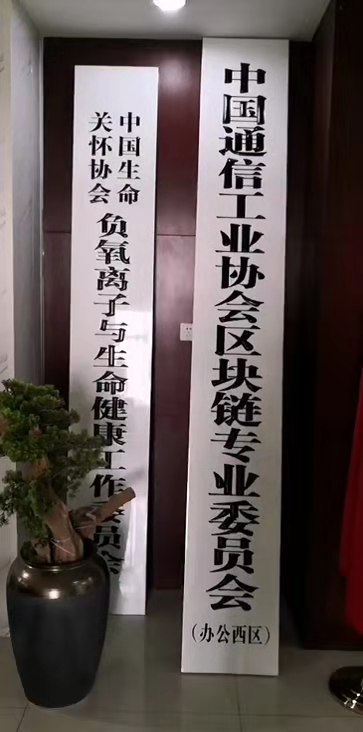 中国通信工业协会区块链专业委员会
（办公西区）
中国生命
关怀协会
负氧离子与生命健康工作委员会